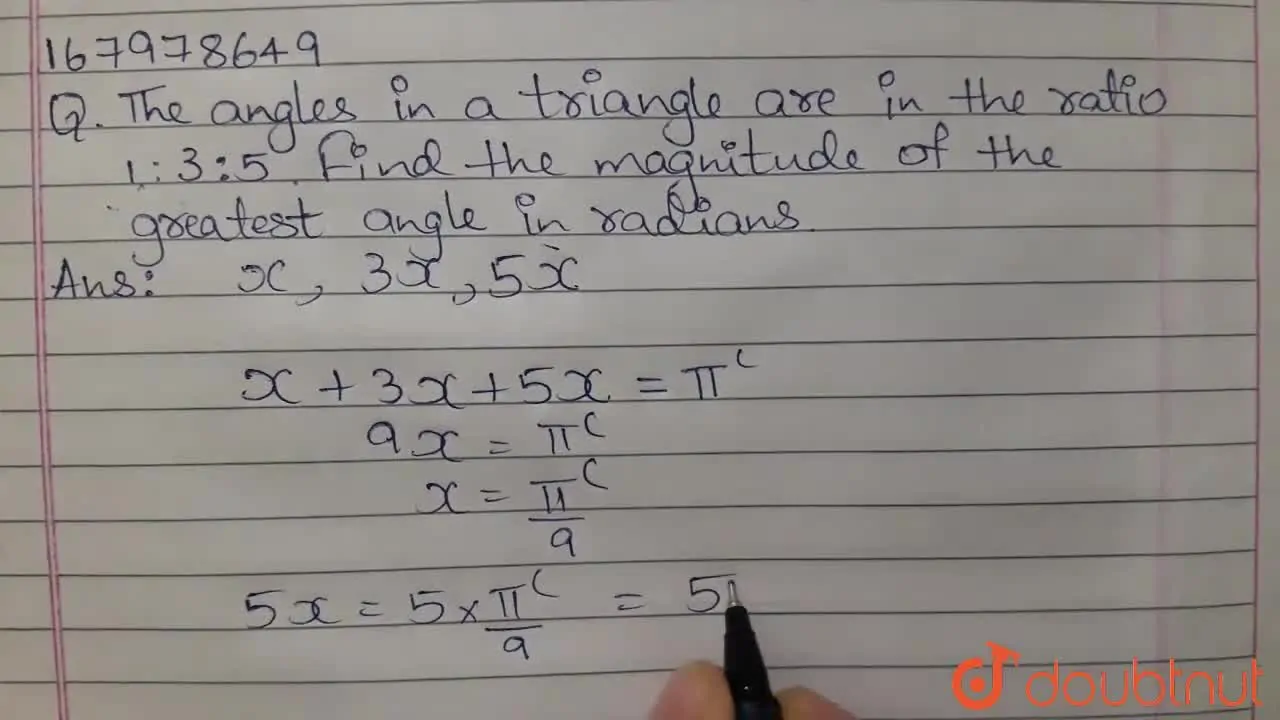 167978649
Q. The angles in a triangle are in the ratio
1:3:5. Find the magnitude of the
greatest angle in radians.
Ans: x, 3x, 5x
x + 3x + 5x = π^c
9x = π^c
x = π^c/9
5x = 5 × π^c/9 = 5
doubtnut